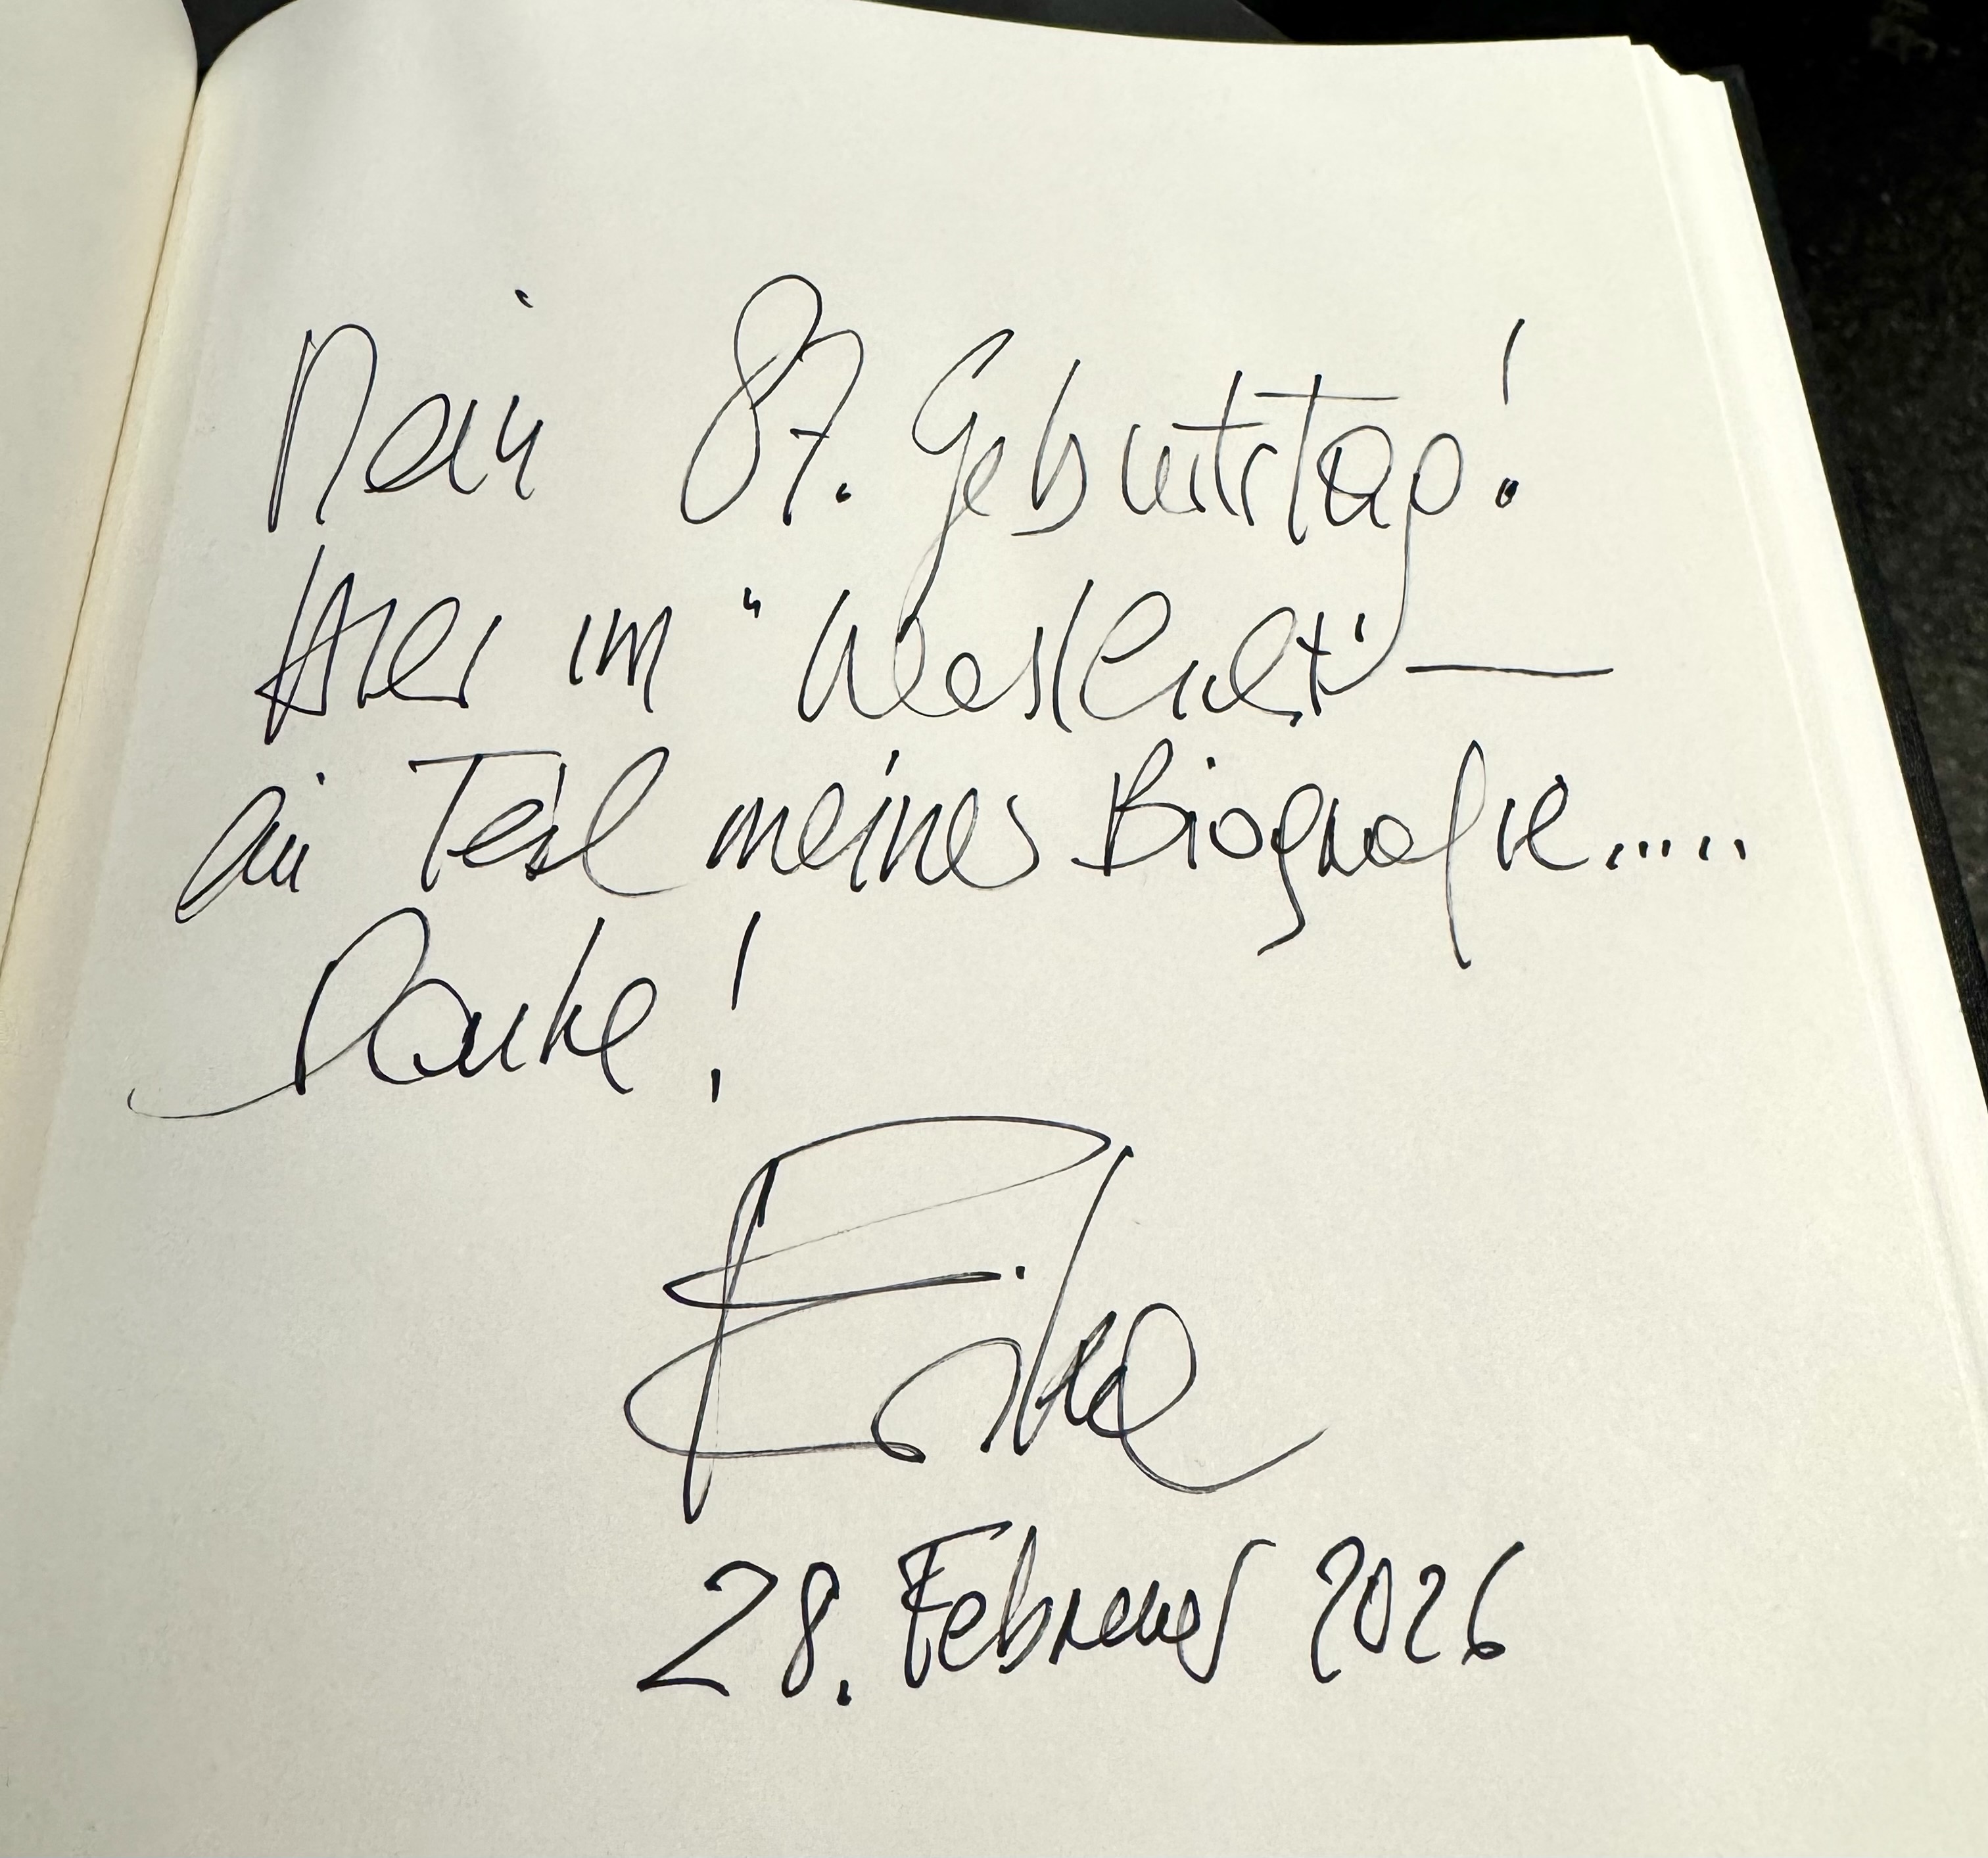 Mein 87. Geburtstag!
Hier im "Westlicht" —
ein Teil meiner Biografie.....
Danke!
28. Februar 2026